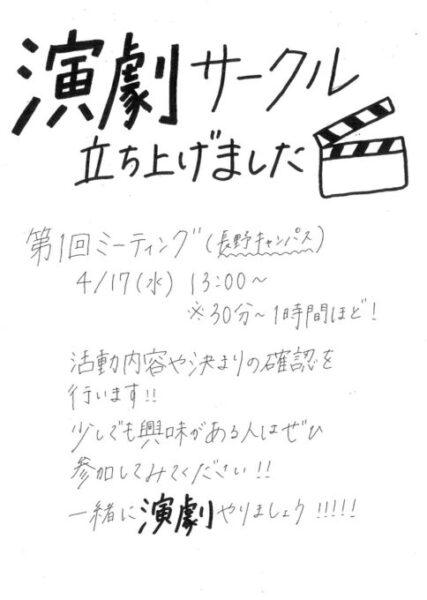 演劇サークル
立ち上げました
第1回ミーティング(長野キャンパス)
4/17(水) 13:00～
※30分～1時間ほど!
活動内容や決まりの確認を
行います!!
少しでも興味がある人はぜひ
参加してみてください!!
一緒に演劇やりましょう!!!!!